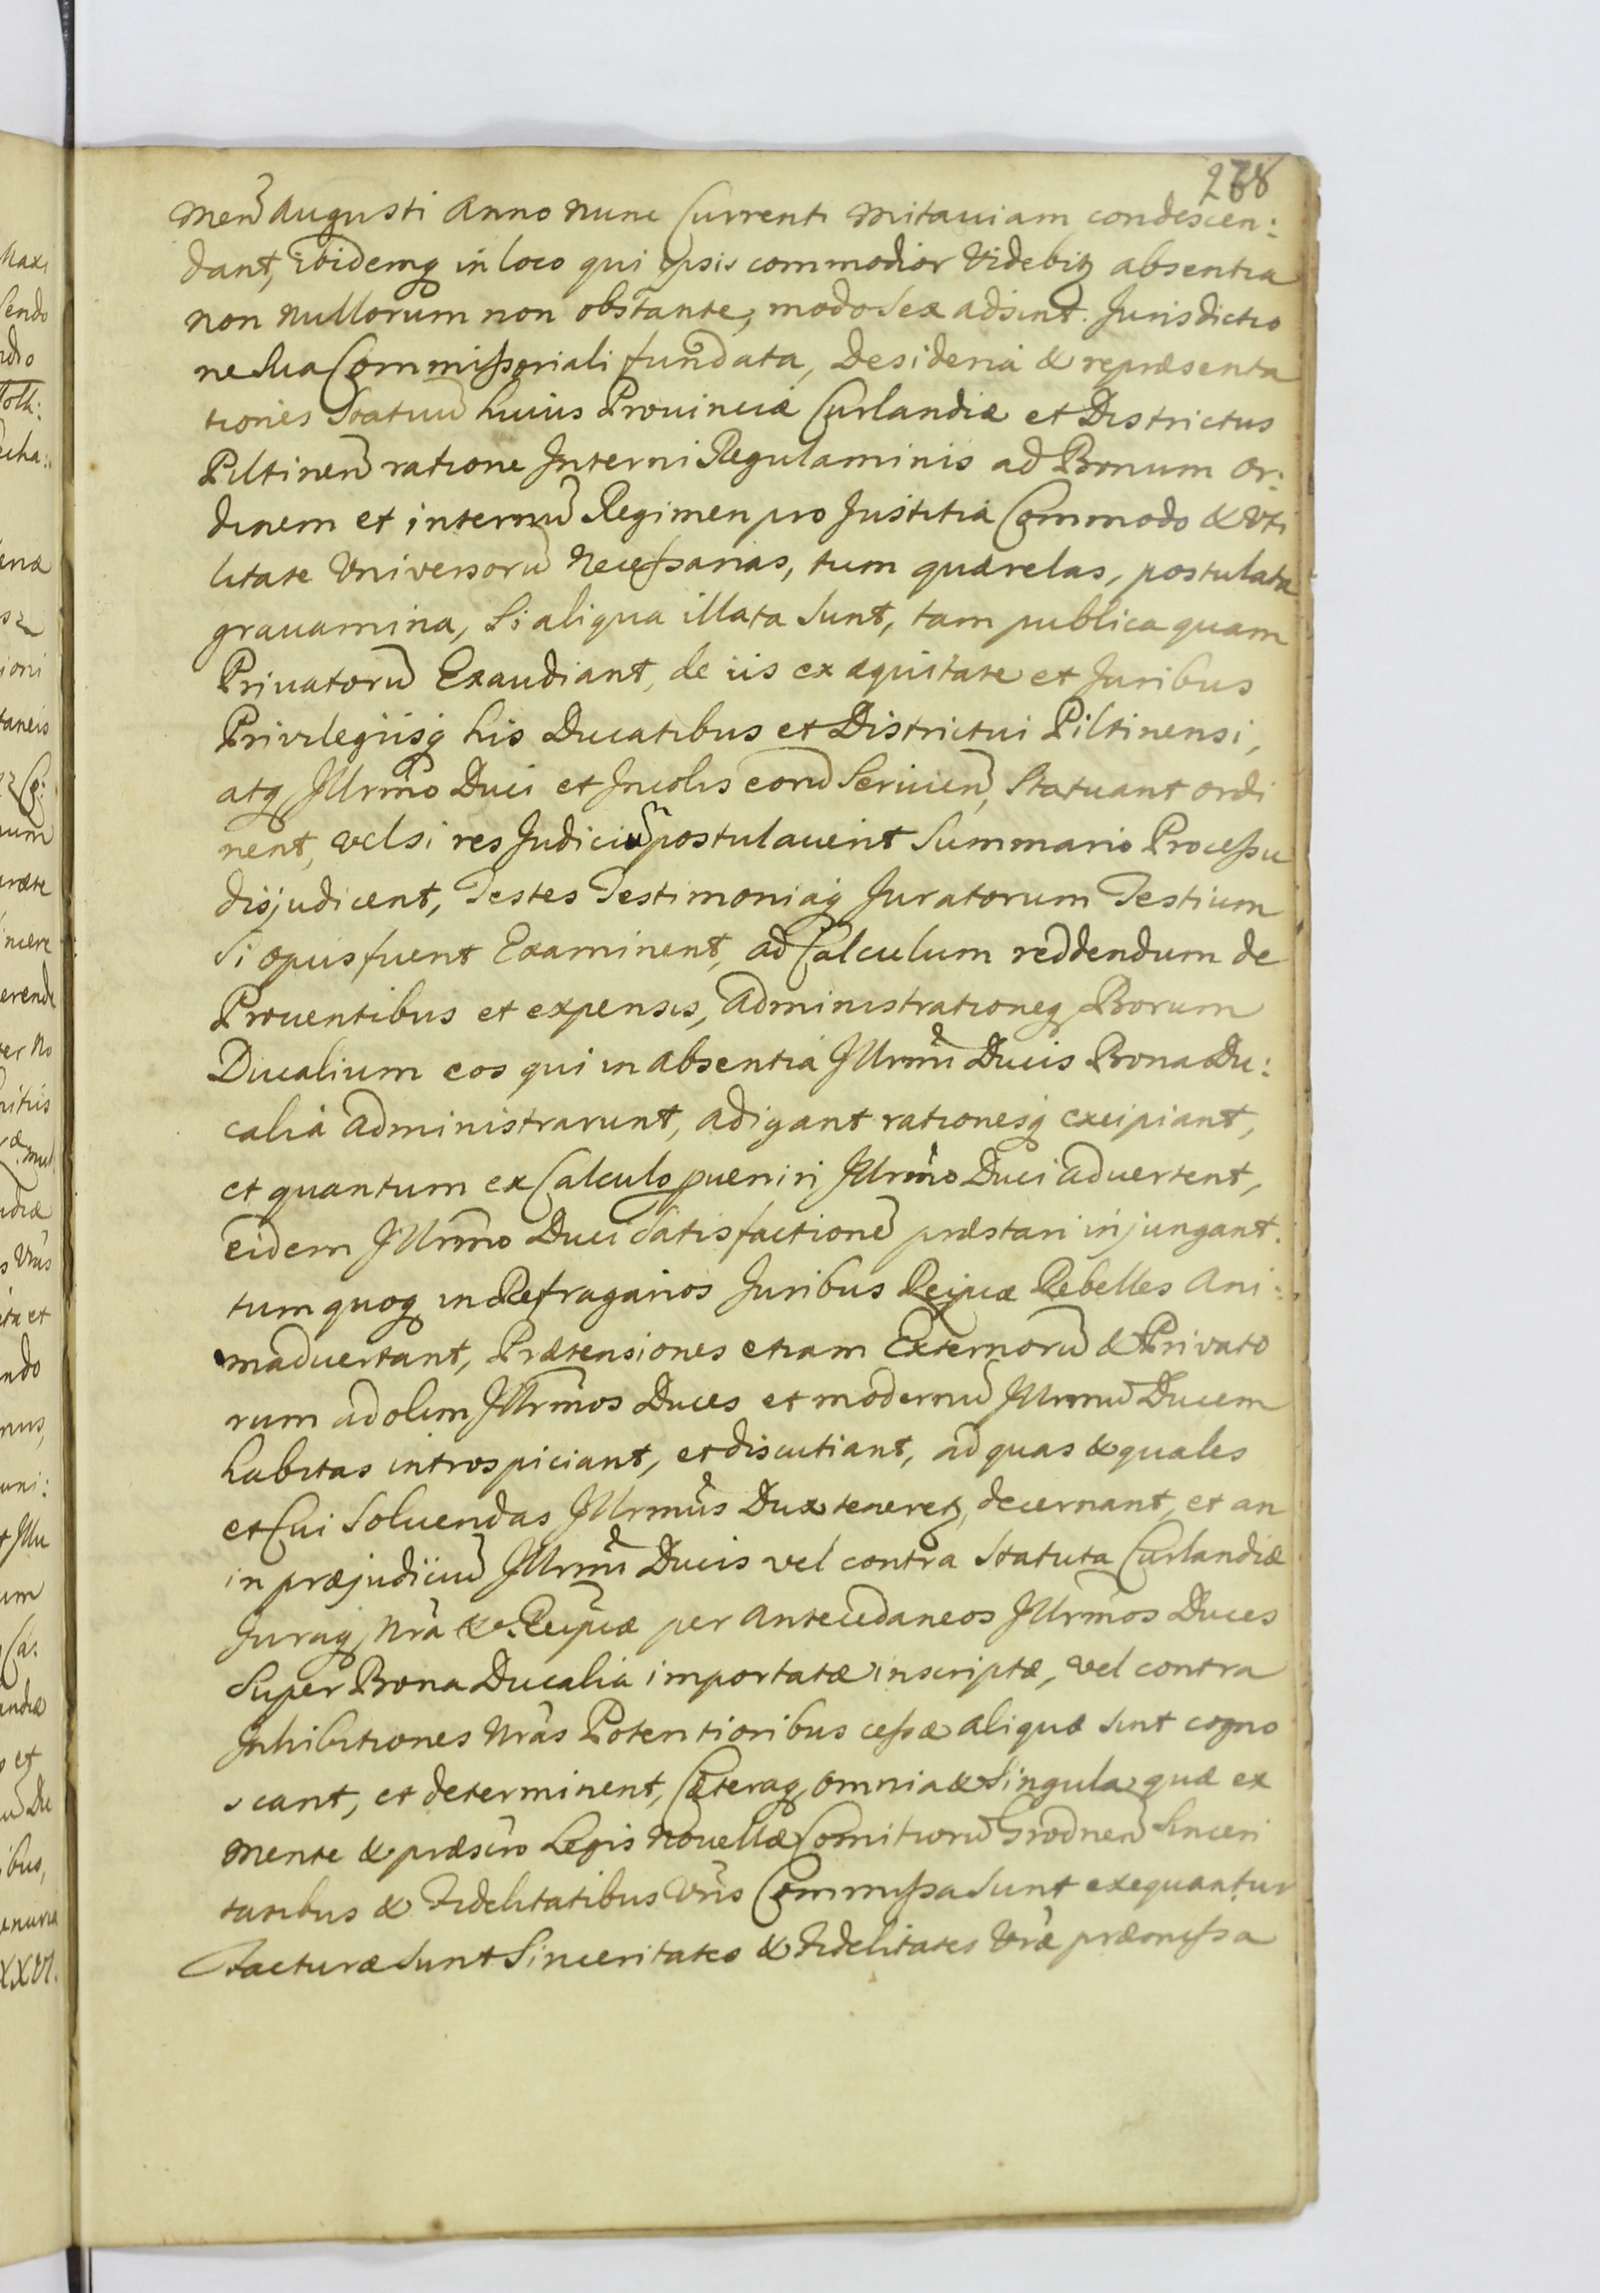 268
Men̄ Augusti Anno nunc Currenti Mitauiam condescen:
dant, Ibidemq in loco qui ipsis commodior Videbitz absentia
non nullorum non obstante, modo sex adsint. Jurisdictio
ne sua Commissoriali fundata, Desideria & repræsenta
tiones Statuū huius Prouinciæ Curlandiæ et Districtus
Piltinen̄ ratione Interni Regulaminis ad Bonum or:
dinem et internū Regimen pro Justitia Commodo & Vti
litate Vniversorū Necessarias, tum quærelas, postulata
grauamina, Si aliqua illata Sunt, tam publica quam
Priuatorū Exaudiant, de iis ex æquitate et Juribus
Privilegiisq his Ducatibus et Districtui Piltinensi,
atq Illrm̄o Duci et Incolis eorū Seruien̄, Statuant ordi
nent, vel si res Judiciū postulauerit Summario Processu
disjudicent, Testes Testimoniaq Juratorum Testium
Si opus fuerit Examinent, ad Calculum reddendum de
Prouentibus et expensis, Administrationeq Bonorum
Ducalium eos qui in absentia Illrm̄i Ducis Bona Du:
calia administrarunt, adigant rationesq excipiant,
et quantum ex Calculo pueniri Illrm̄o Duci aduertent,
eidem Illrm̄o Duci Satisfactionē præstari injungant.
tum quoq in Refragarios Juribus Reipcæ Rebelles Ani:
maduertant, Prætensiones etiam Externorū & Privato
rum ad olim Illrm̄os Duces et modernū Illrmū Ducem
habitas introspiciant, et discutiant, ad quas & quales
et Cui Soluendas Illrmus Dux teneretz, decernant, et an
in præjudiciū Illrm̄i Ducis vel contra Statuta Curlandiæ
Juraq Nr̄a & Reipcæ per antecedaneos Illrm̄os Duces
Super Bona Ducalia importatæ inscriptæ, vel contra
Inhibitiones Nr̄as Potentioribus cessæ aliquæ sint cogno
scant, et determinent, Cæteraq omnia & Singula quæ ex
Mente & præscrō Legis Nouellæ Comitiorū Grodnen̄ Sinceri
tatibus & Fidelitatibus Vris Commissa Sunt exequantur
Facturæ Sunt Sinceritates & Fidelitates Vræ præmissa